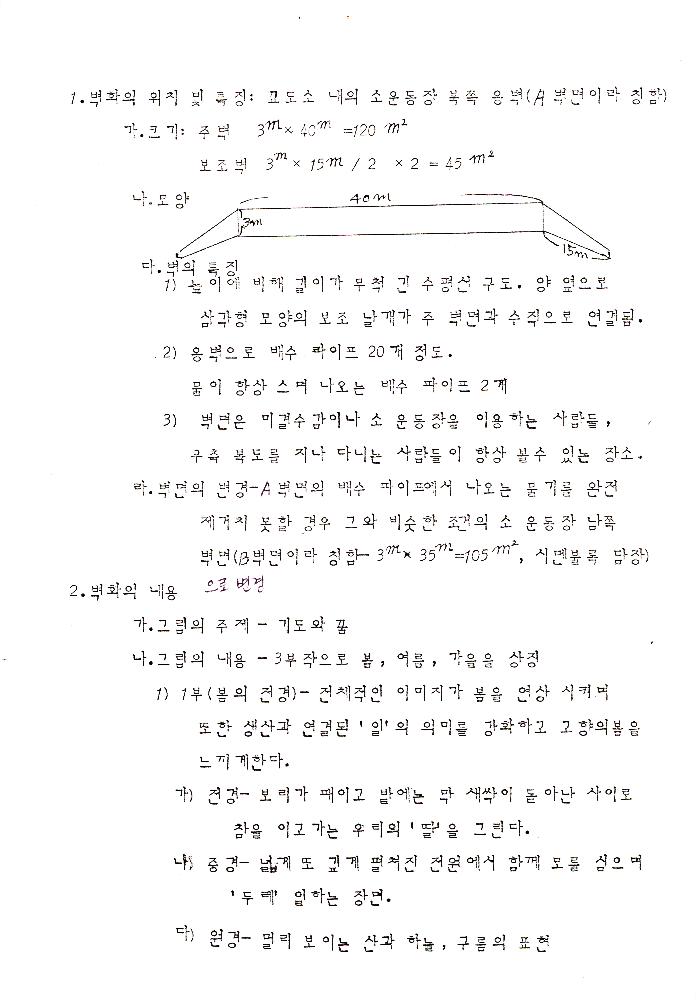 1.벽화의 위치 및 특징: 교도소 내의 소운동장 북쪽 옹벽(A벽면이라 칭함)
가.크기: 주벽 3m × 40m =120 m²
보조벽 3m × 15m / 2 × 2 = 45 m²
나.모양
40m
3m
15m
다.벽의 특징
1) 높이에 비해 길이가 무척 긴 수평선 구도. 양 옆으로
삼각형 모양의 보조 날개가 주 벽면과 수직으로 연결됨.
2) 옹벽으로 배수 파이프 20개 정도.
물이 항상 스며 나오는 배수 파이프 2개
3) 벽면은 미결수감이나 소 운동장을 이용하는 사람들,
우측 복도를 지나 다니는 사람들이 항상 볼수 있는 장소.
라.벽면의 변경-A벽면의 배수 파이프에서 나오는 물기를 완전
제거치 못할 경우 그와 비슷한 조건의 소 운동장 남쪽
벽면(B벽면이라 칭함- 3m × 35m=105m², 시멘블록 담장)
으로 변경
2.벽화의 내용
가.그림의 주제 - 기도와 꿈
나.그림의 내용 - 3부작으로 봄, 여름, 가을을 상징
1) 1부(봄의 전경)- 전체적인 이미지가 봄을 연상 시키며
또한 생산과 연결된 '일'의 의미를 강화하고 고향의봄을
느끼게한다.
가) 전경- 보리가 패이고 밭에는 막 새싹이 돋아난 사이로
참을 이고가는 우리의 '딸'을 그린다.
나) 중경- 넓게 또 깊게 펼쳐진 전원에서 함께 모를 심으며
'두레' 일하는 장면.
다) 원경- 멀리 보이는 산과 하늘, 구름의 표현